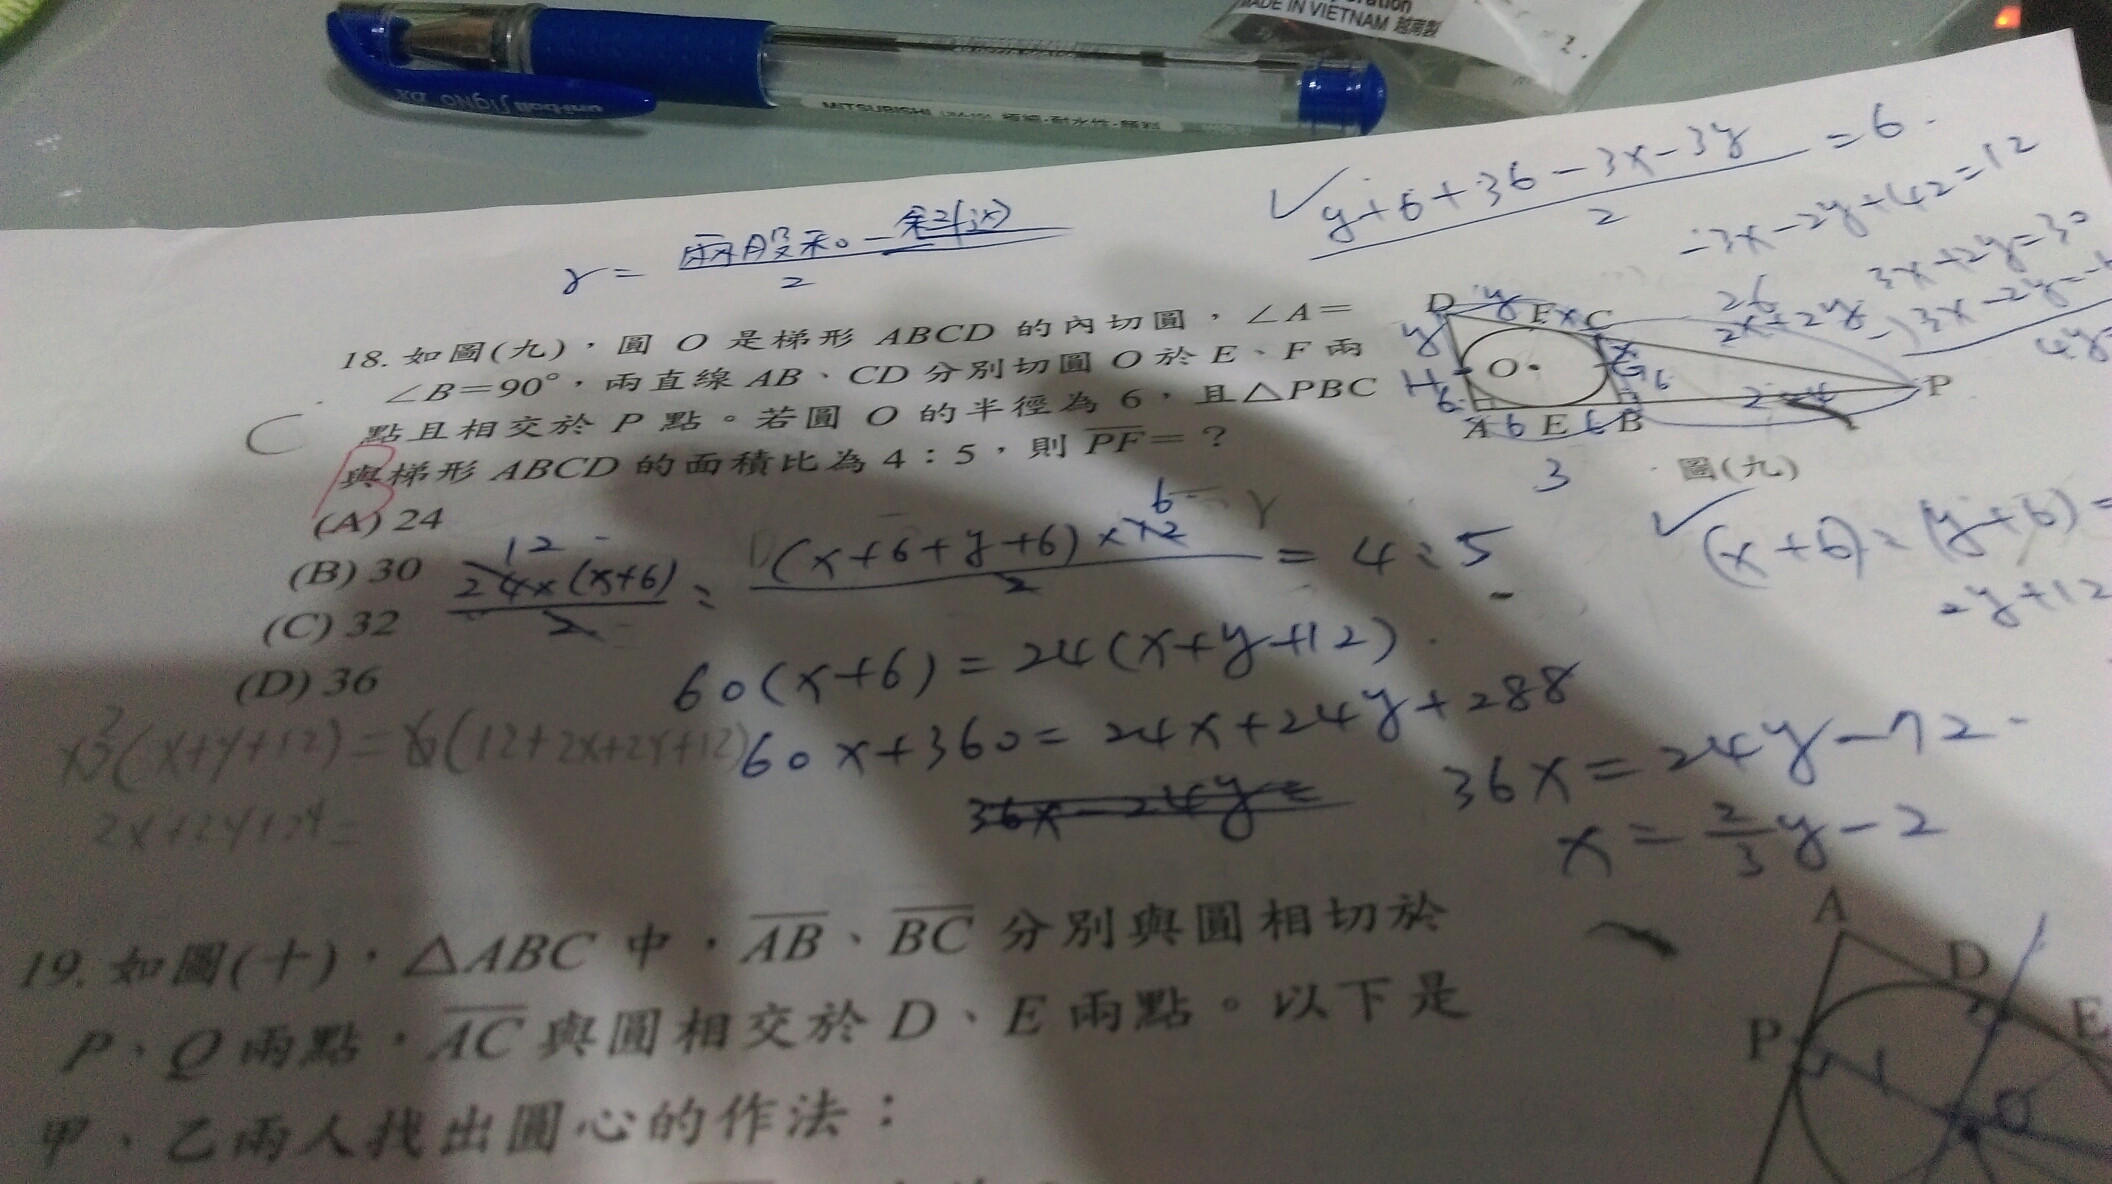 MADE IN VIETNAM 越南製
uni-ball Signo DX
MITSUBISHI
r = 兩股和-斜
2
✓ y+6+36-3x-3y = 6
2
-3x-2y+42=12
3x+2y=30
18. 如圖(九)，圓 O 是梯形 ABCD 的內切圓，∠A=
∠B=90°，兩直線 AB、CD 分別切圓 O 於 E、F 兩
點且相交於 P 點。若圓 O 的半徑為 6，且△PBC
與梯形 ABCD 的面積比為 4：5，則 PF=？
C
B
(A) 24
(B) 30
(C) 32
(D) 36
D y F x C
26
2x+2y
y x
H O G 6 P
6
A 6 E 6 B
3
圖(九)
12
24×(x+6)
2
: (x+6+y+6)×12 = 4:5
6
2
✓ (x+6):(y+6)=
2y+12
60(x+6)=24(x+y+12)
60x+360=24x+24y+288
36x-24y=
36x=24y-72
x=2/3y-2
(x+y+12)=6(12+2x+2y+12)
19. 如圖(十)，△ABC 中，AB、BC 分別與圓相切於
P、Q 兩點，AC 與圓相交於 D、E 兩點。以下是
甲、乙兩人找出圓心的作法：
A
D
E
P
O